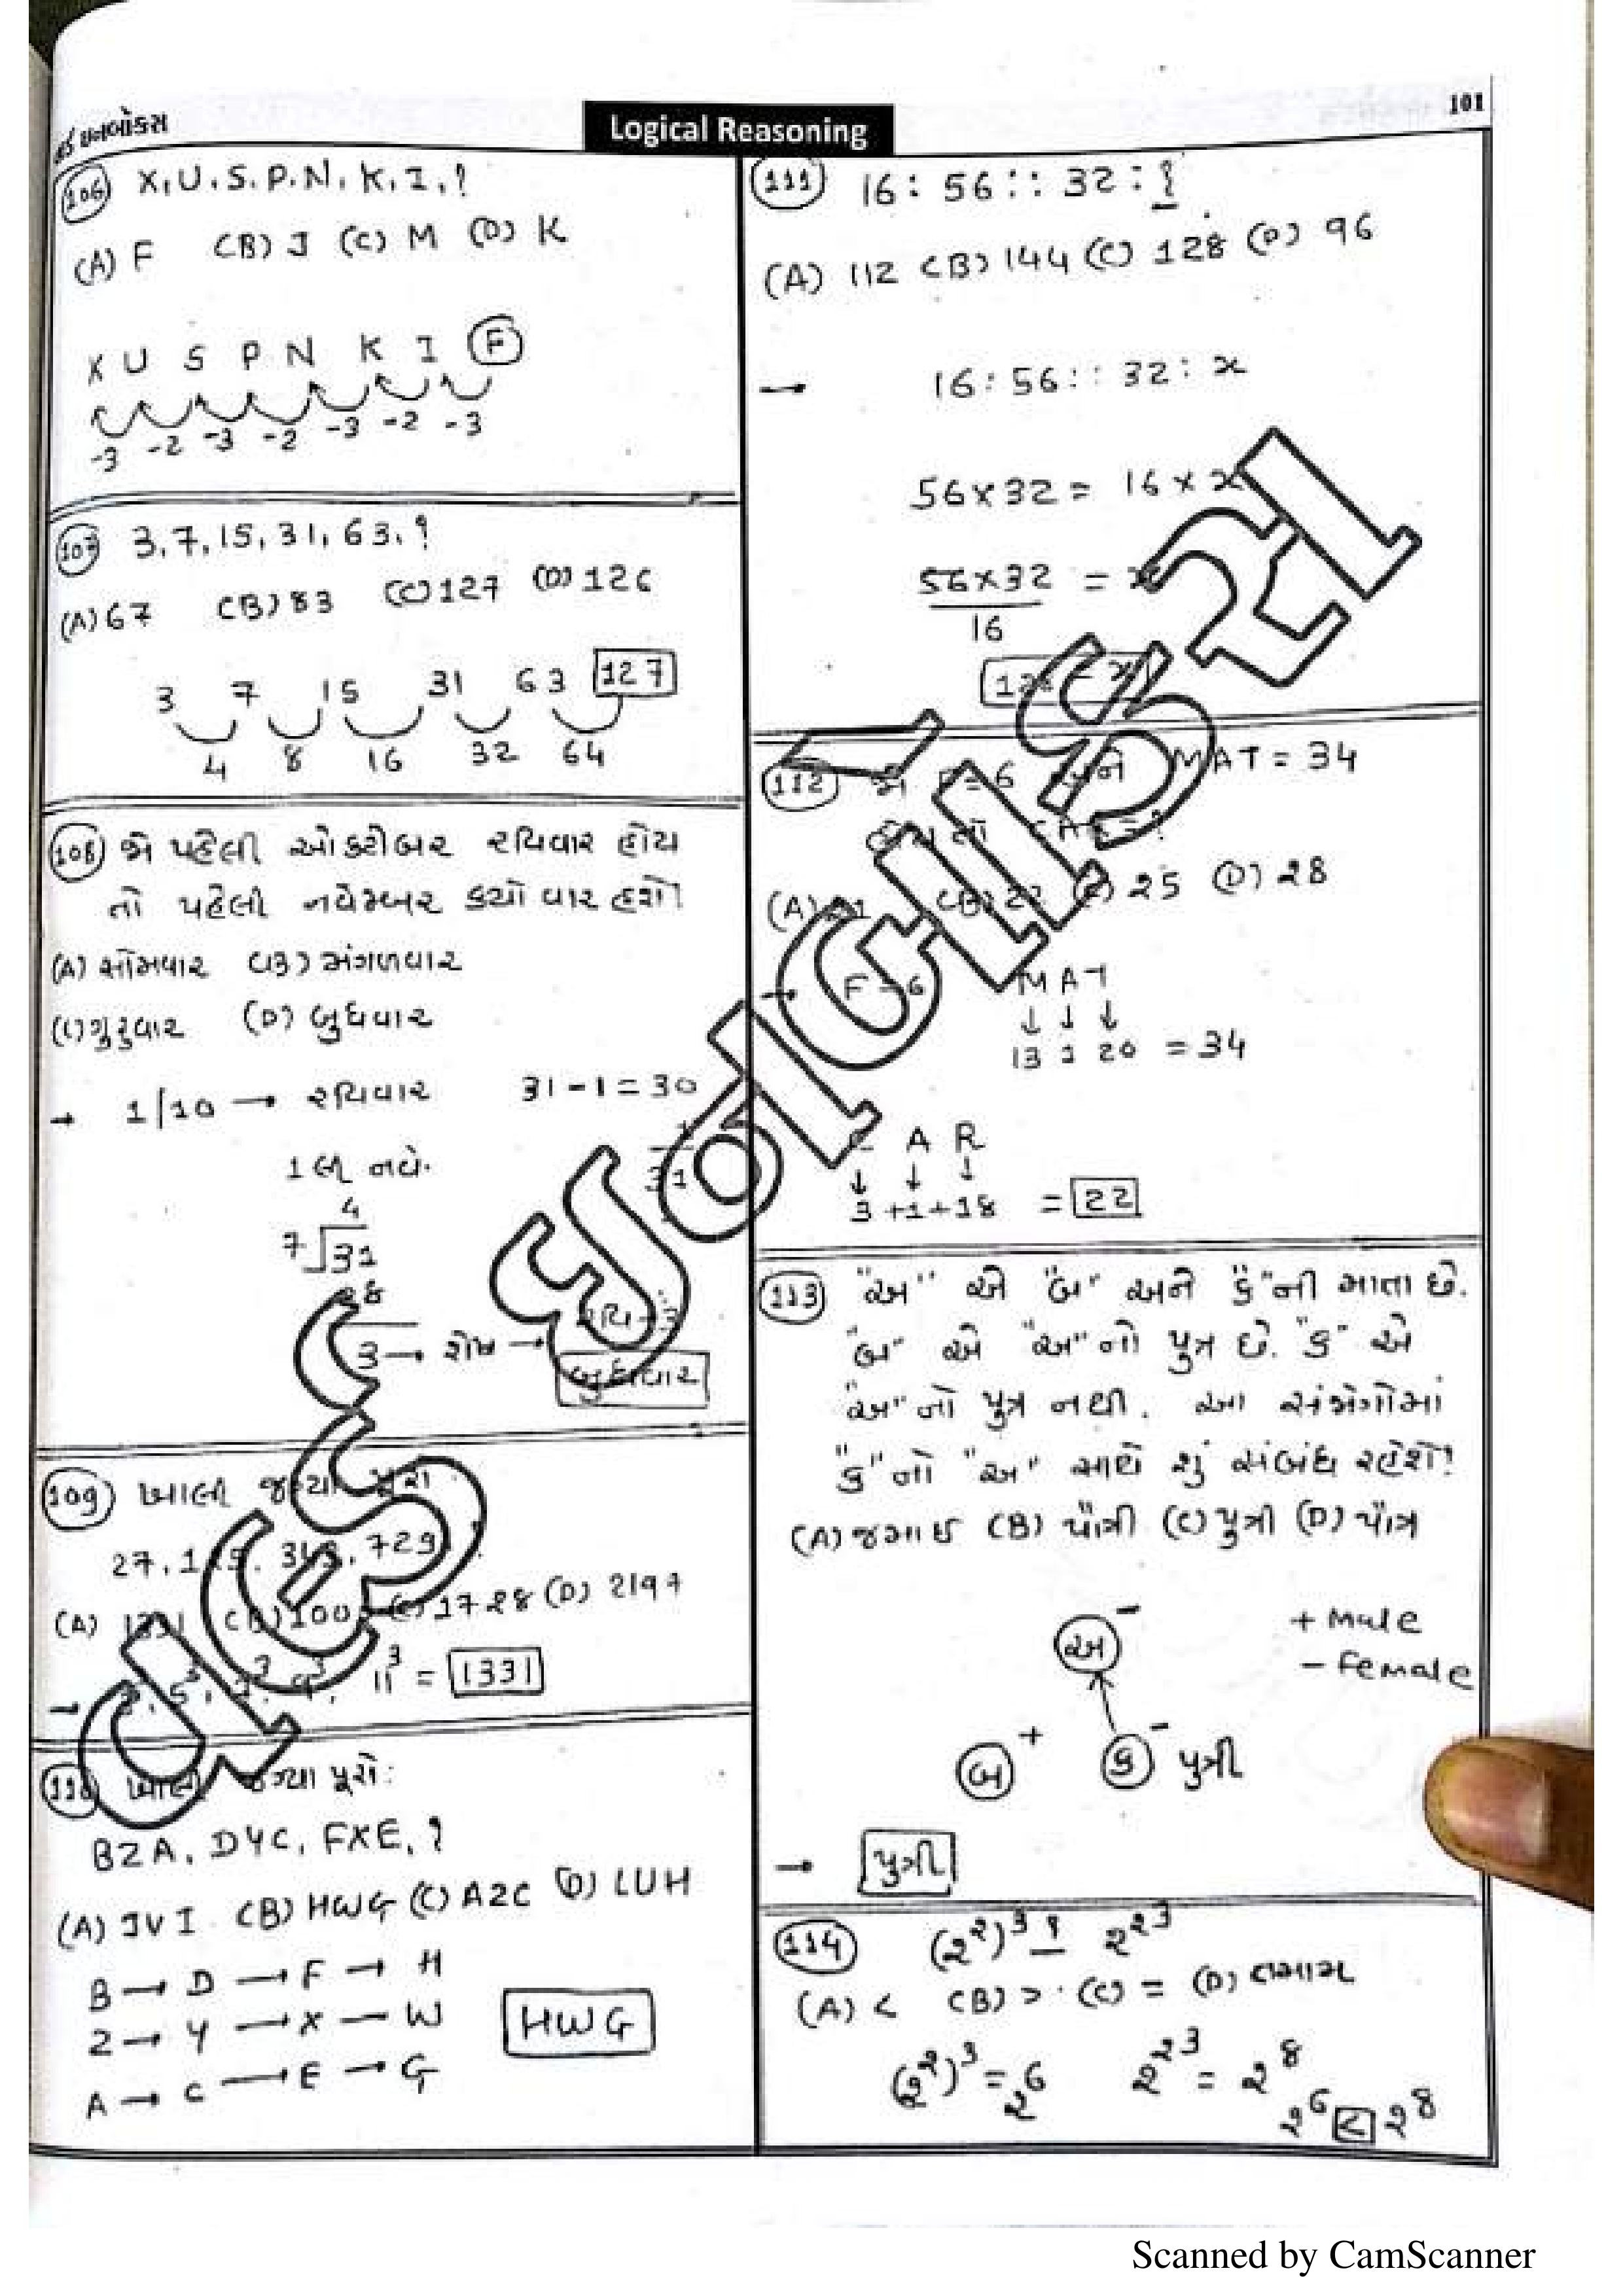 Logical Reasoning
101
106 X, U, S, P, N, K, I, ?
(A) F (B) J (C) M (D) K
X U S P N K I F
-3 -2 -3 -2 -3 -2 -3
107 3, 7, 15, 31, 63, ?
(A) 67 (B) 83 (C) 127 (D) 126
3 7 15 31 63 127
4 8 16 32 64
108 જો પહેલી ઓક્ટોબર રવિવાર હોય
તો પહેલી નવેમ્બર કયો વાર હશે?
(A) સોમવાર (B) મંગળવાર
(C) ગુરુવાર (D) બુધવાર
→ 1/10 → રવિવાર 31-1=30
1 લી નવે.
31
4
7 31
28
3 → શેષ →
બુધવાર
109 ખાલી જગ્યા પૂરો
27, 125, 343, 729
(A) 1331 (B) 100 (C) 1728 (D) 2197
11³ = 1331
110 ખાલી જગ્યા પૂરો:
BZA, DYC, FXE, ?
(A) JVI (B) HWG (C) AZC (D) LUH
B → D → F → H
Z → Y → X — W
A → C → E → G
HWG
111 16 : 56 :: 32 : ?
(A) 112 (B) 144 (C) 128 (D) 96
→ 16 : 56 :: 32 : x
56×32 = 16×x
56×32 = x
16
112 F=6 અને MAT = 34
(A) 21 (B) 22 (C) 25 (D) 28
→ F=6 MAT
↓ ↓ ↓
13 1 20 = 34
C A R
↓ ↓ ↓
3+1+18 = 22
113 "અ" એ "બ" અને "ક"ની માતા છે.
"બ" એ "અ"નો પુત્ર છે. "ક" એ
"અ"નો પુત્ર નથી. આ સંજોગોમાં
"ક"નો "અ" સાથે શું સંબંધ રહેશે?
(A) જમાઈ (B) પૌત્રી (C) પુત્રી (D) પૌત્ર
અ - + Male
- Female
બ + ક - પુત્રી
→ પુત્રી
114 (2²)³ ? 2^2^3
(A) < (B) > (C) = (D) તમામ
(2²)³ = 2⁶ 2^2^3 = 2⁸
2⁶ < 2⁸
Scanned by CamScanner